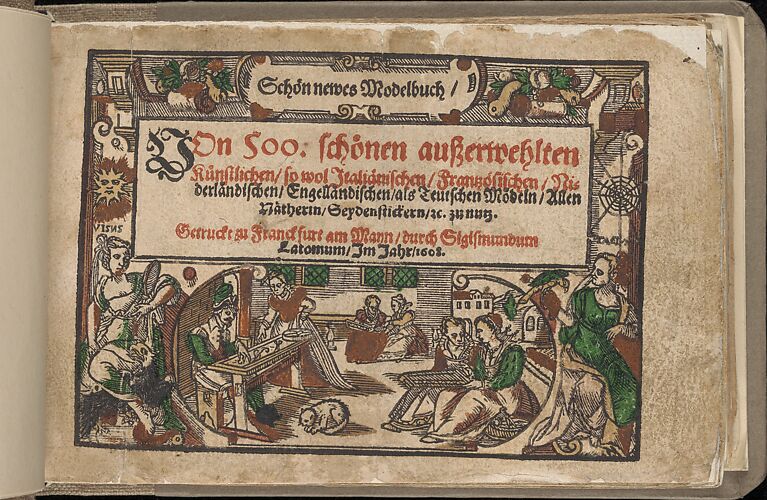 Schön newes Modelbuch /
VOn 500. schönen außerwehlten
Künstlichen / so wol Italiänischen / Frantzösischen / Ni-
derländischen / Engelländischen / als Teutschen Mödeln / Allen
Nätherin / Seydenstickern / ꝛc. zu nutz.
Getruckt zu Franckfurt am Mayn / durch Sigismundum
Latomum / Im Jahr / 1608.
VISUS